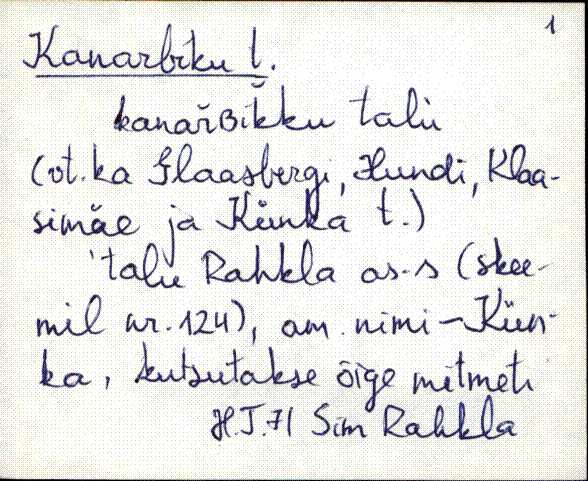 1
Kanarbiku t.
kanarBikku talu
(vt. ka Glaasbergi, Hundi, Klaa-
simäe ja Künka t.)
talu Rahkla as-s (skee-
mil nr. 124), am. nimi - Kün-
ka, kutsutakse õige mitmeti
H.J. 71 Sim Rahkla